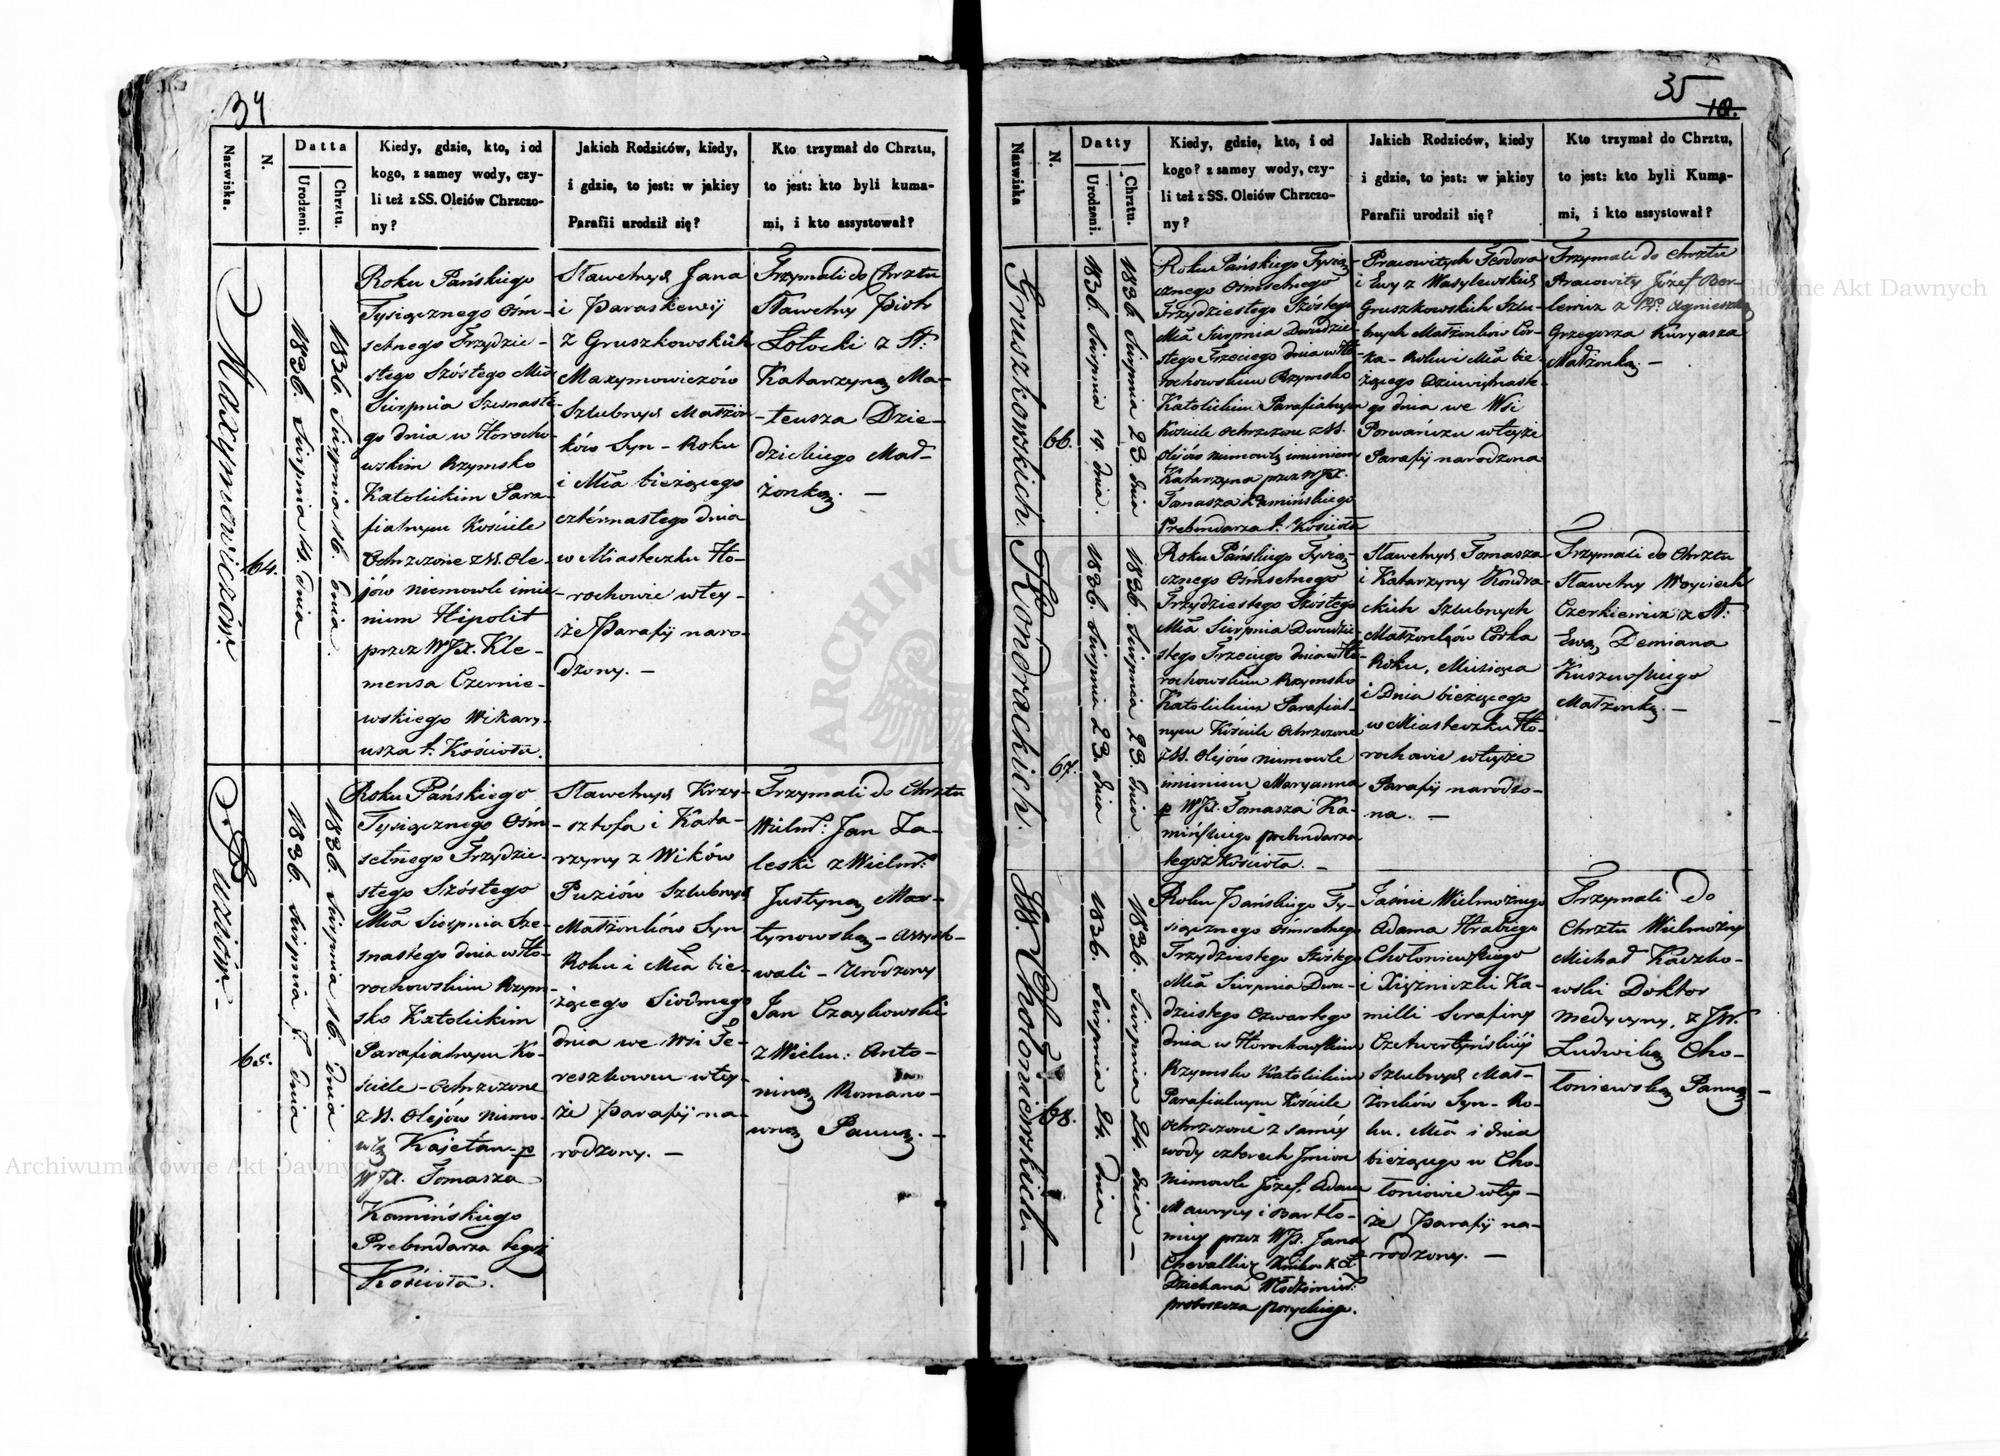 34
Nazwiska.
N.
Datta
Urodzeni.
Chrztu.
Kiedy, gdzie, kto, i od
kogo, z samey wody, czy-
li też z SS. Oleiów Chrzczo-
ny?
Jakich Rodziców, kiedy,
i gdzie, to jest: w jakiey
Parafii urodził się?
Kto trzymał do Chrztu,
to jest: kto byli kuma-
mi, i kto assystował?
Maxymowiczów.
64.
1836. Sierpnia 14. dnia
1836. Sierpnia 16. dnia.
Roku Pańskiego
Tysiącznego Ośm-
setnego Trzydzie-
stego Szóstego Mca
Sierpnia Szesnaste-
go dnia w Horocho-
wskim Rzymsko
Katolickim Para-
fialnym Kościele
Ochrzczone z SS. Ole-
jów niemowle imie-
niem Hipolit
przez WJX. Kle-
mensa Czernie-
wskiego Wikary-
usza t. Kościoła.
Sławetnych Jana
i Paraskewij
z Gruszkowskich
Maxymowiczów
Szlubnych Małżon-
ków Syn - Roku
i Mca bieżącego
czternastego dnia
w Miasteczku Ho-
rochowie wtey-
że Parafij naro-
dzony. -
Trzymali do Chrztu
Sławetny Piotr
Łotocki z St:
Katarzyną Ma-
-teusza Dzie-
dzickiego Mał-
żonką. -
Puziów. -
65.
1836. Sierpnia 7. dnia
1836. Sierpnia 16. dnia.
Roku Pańskiego
Tysiącznego Ośm
setnego Trzydzie-
stego Szóstego
Mca Sierpnia Sze-
snastego dnia w Ho-
rochowskim Rzym-
sko Katolickim
Parafialnym Ko-
ściele - ochrzczone
z SS. Olejów niemo-
wlę Kajetan - p
WJX. Tomasza
Kamińskiego
Prebendarza tegoż
Kościoła.
Sławetnych Krzy-
-sztofa i Kata-
rzyny z Wików
Puziów Szlubnych
Małżonków Syn
Roku i Mca bie-
żącego Siódmego
dnia we Wsi Te-
reszkowcu wtey-
że Parafij na-
rodzony. -
Trzymali do Chrztu
Wielm: Jan Za-
leski z Wielm:
Justyną Mar-
tynowską - Assysto-
wali - Urodzony
Jan Czaykowski
z Wielm: Anto-
niną Romano-
wną Panną. -
35
Nazwiska
N.
Datty
Urodzeni.
Chrztu.
Kiedy, gdzie, kto, i od
kogo? z samey wody, czy-
li też z SS. Oleiów Chrzczo-
ny?
Jakich Rodziców, kiedy
i gdzie, to jest: w jakiey
Parafii urodził się?
Kto trzymał do Chrztu,
to jest: kto byli Kuma-
mi, i kto assystował?
Gruszkowskich.
66.
1836. Sierpnia 19. dnia
1836. Sierpnia 23. dnia
Roku Pańskiego Tysią-
cznego Ośmsetnego
Trzydziestego Szóstego
Mca Sierpnia Dwudzie-
stego Trzeciego dnia w Ho-
rochowskim Rzymsko
Katolickim Parafialnym
Kościele ochrzczone z SS.
Olejów niemowlę imieniem
Katarzyna przez WJX.
Tomasza Kamińskiego
Prebendarza t. Kościoła
Pracowitych Teodora
i Ewy z Wasylewskich
Gruszkowskich Szlu-
bnych Małżonków Cór-
ka - Roku i Mca bie-
żącego Dziewiętnaste-
go dnia we Wsi
Porwańczu wteyże
Parafij narodzona
Trzymali do chrztu
Pracowity Józef
z Agnieszką
Grzegorza Kuryasza
Małżonką. -
Kondrackich.
67.
1836. Sierpnia 23. dnia
1836. Sierpnia 23. dnia
Roku Pańskiego Tysią-
cznego Ośmsetnego
Trzydziestego Szóstego
Mca Sierpnia Dwudzie-
stego Trzeciego dnia w Ho-
rochowskim Rzymsko
Katolickim Parafial-
nym Kościele Ochrzczone
z SS. Olejów niemowle
imieniem Maryanna
p WJX. Tomasza Ka-
mińskiego prebendarza
tegoż Kościoła. -
Sławetnych Tomasza
i Katarzyny Kondra-
ckich Szlubnych
Małżonków Córka
Roku, Miesiąca
i Dnia bieżącego
w Miasteczku Ho-
rochowie wteyże
Parafij narodzo-
na. -
Trzymali do Chrztu
Sławetny Woyciech
Czerkiewicz z St:
Ewą Demiana
Kuszewskiego
Małżonką. -
JW. Chołoniewskich. -
68.
1836. Sierpnia 24. dnia
1836. Sierpnia 24. dnia -
Roku Pańskiego Ty-
siącznego Ośmsetnego
Trzydziestego Szóstego
Mca Sierpnia Dwu-
dziestego Czwartego
dnia w Horochowskim
Rzymsko Katolickim
Parafialnym Kościele
ochrzczone z samey
wody czterech Imion
niemowle Józef, Adam
Maurycy i Bartło-
miey przez WJX. Jana
Chevallier
Dziekana Włodzimier:
proboszcza poryckiego.
Jaśnie Wielmożnego
Adama Hrabiego
Chołoniewskiego
i Xiężniczki Ka-
milli Serafiny
Czetwertyńskiey
Szlubnych Mał-
żonków Syn - Ro-
ku, Mca i dnia
bieżącego w Cho-
łoniowie wtey-
że Parafij na-
rodzony. -
Trzymali do
Chrztu Wielmożny
Michał Kaczko-
wski Doktor
Medycyny, z JW.
Ludwiką Cho-
łoniewską Panną -
Archiwum Główne Akt Dawnych
Archiwum Główne Akt Dawnych
ARCHIWUM